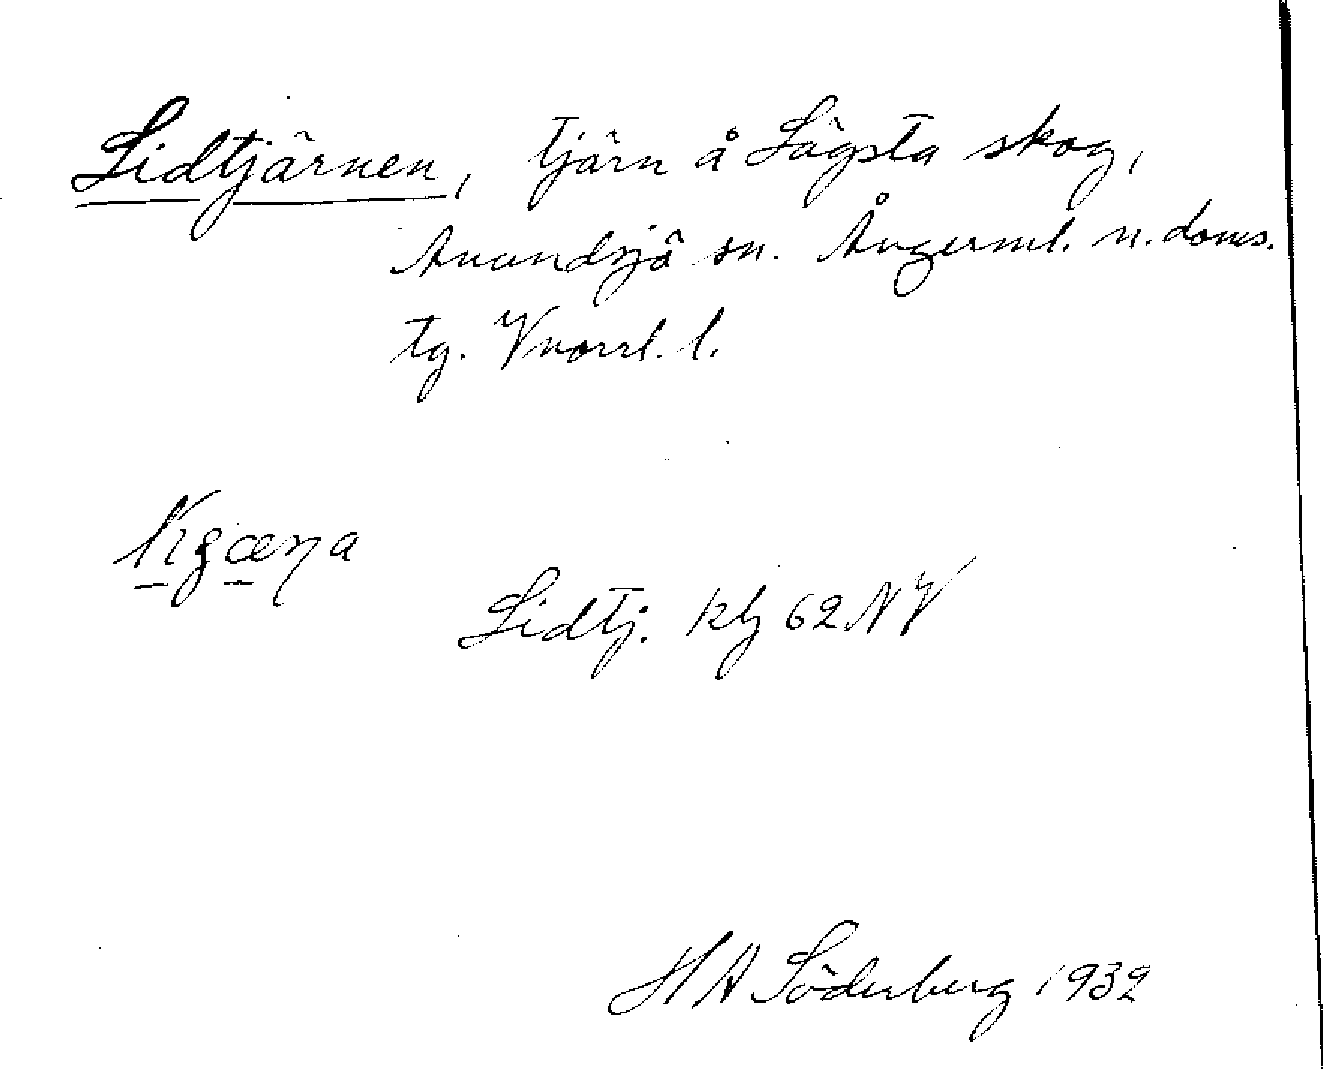 Lidtjärnen, tjärn å Lägsta skog,
Anundsjö sn. Ångerml. n. doms.
tg. Vnorrl. l.
Lidtj. kbj 62 NV
H A Söderberg 1932